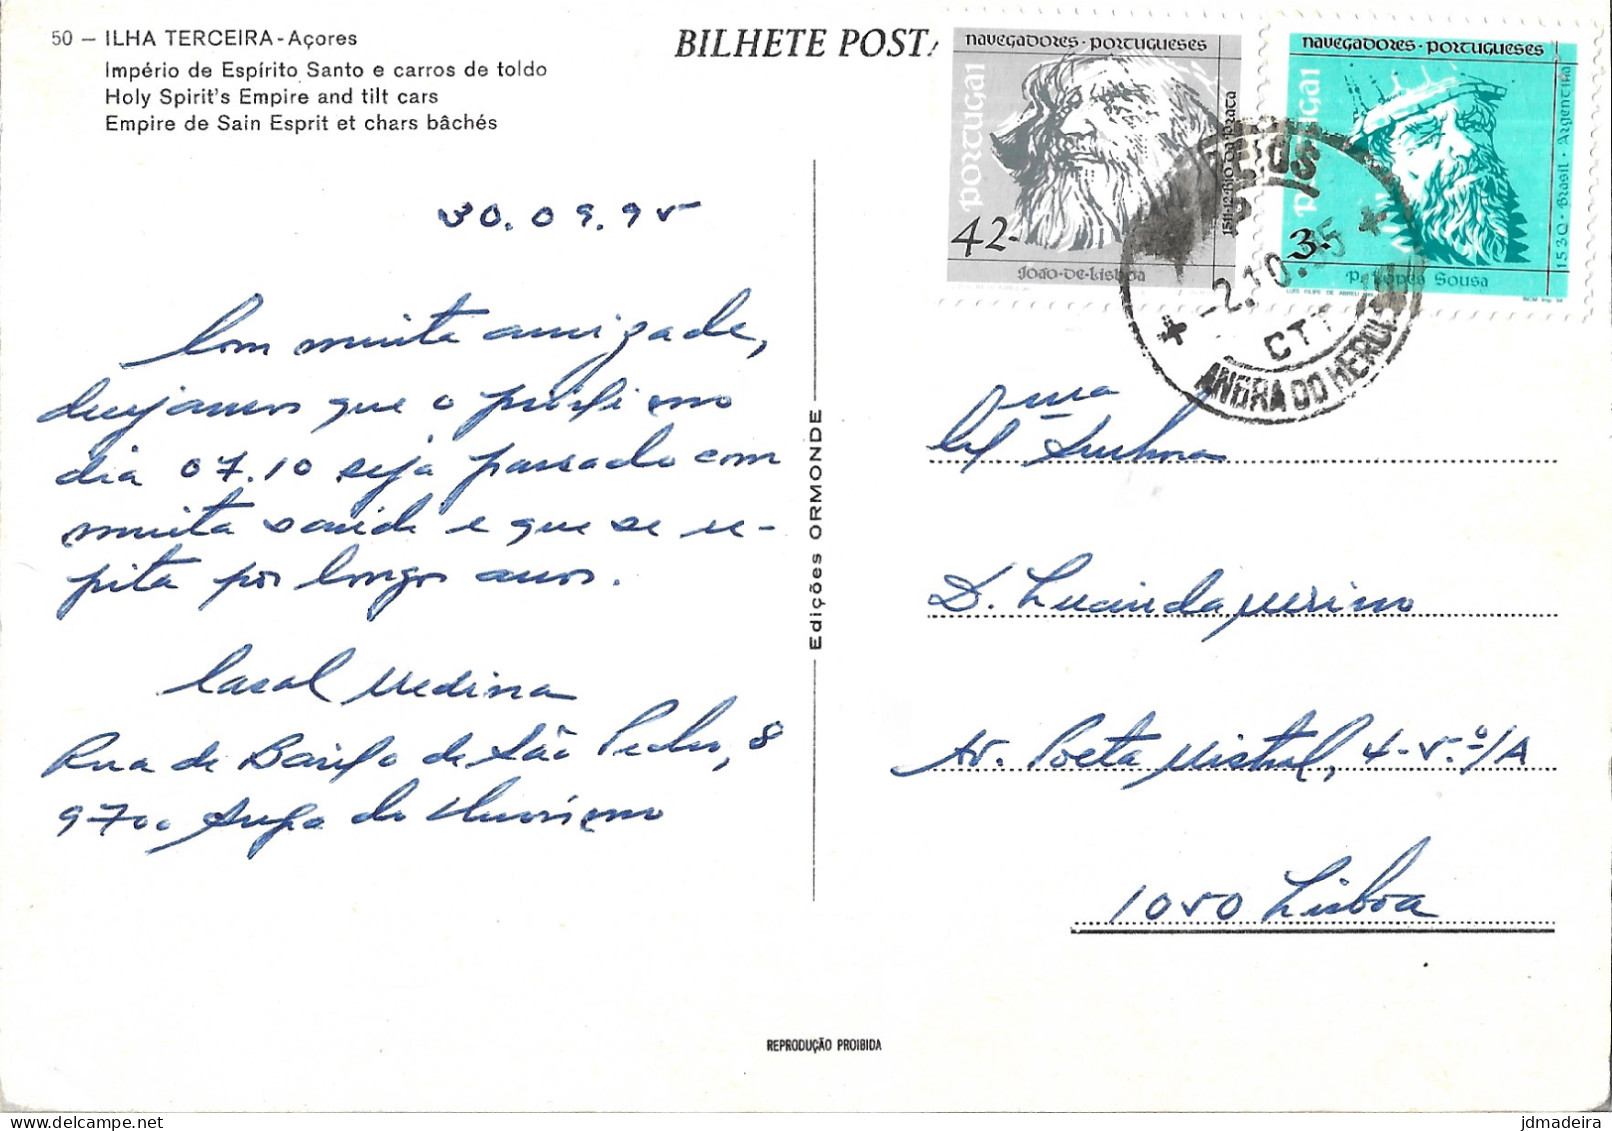 50 — ILHA TERCEIRA - Açores
Império de Espírito Santo e carros de toldo
Holy Spirit's Empire and tilt cars
Empire de Sain Esprit et chars bâchés
BILHETE POST
navegadores · portugueses
portugal
1511-12 · Rio da Prata
42-
João · de · Lisboa
navegadores · portugueses
portugal
1530 · Brasil · Argentina
3-
P. Lopes Sousa
-2.10.95
CTT
ANGRA DO HEROIS
30.09.95
Com muita amizade,
desejamos que o próximo
dia 07.10 seja passado com
muita saúde e que se re-
pita por longos anos.
Casal Medina
Rua do Bairro de São Pedro, 8
9700 Angra do Heroísmo
Edições ORMONDE
Exma
Senhora
D. Lucinda
Av. Poeta Mistral, 4-5.º/A
1050 Lisboa
REPRODUÇÃO PROIBIDA
jdmadeira